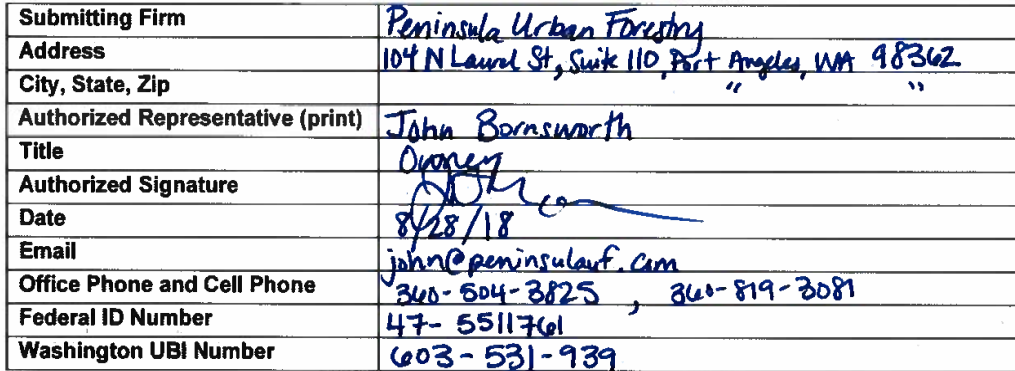 Submitting Firm Peninsula Urban Forestry
Address 104 N Laurel St, Suite 110, Port Angeles, WA 98362
City, State, Zip " "
Authorized Representative (print) John Bornsworth
Title Owner
Authorized Signature
Date 8/28/18
Email john@peninsulauf.com
Office Phone and Cell Phone 360-504-3825 , 360-819-3081
Federal ID Number 47-5511761
Washington UBI Number 603-531-939